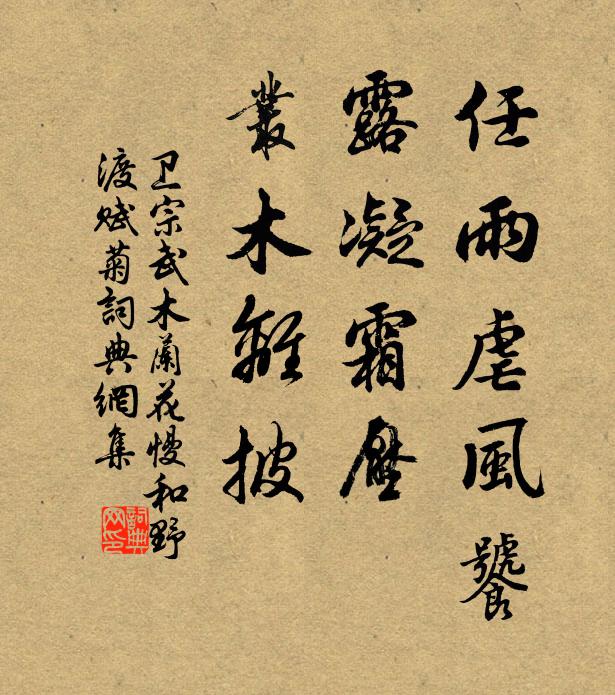 任雨虐風饕
露凝霜壓
叢木離披
卫宗武木蘭花慢和野
渡賦菊詞典網集
詞典网印